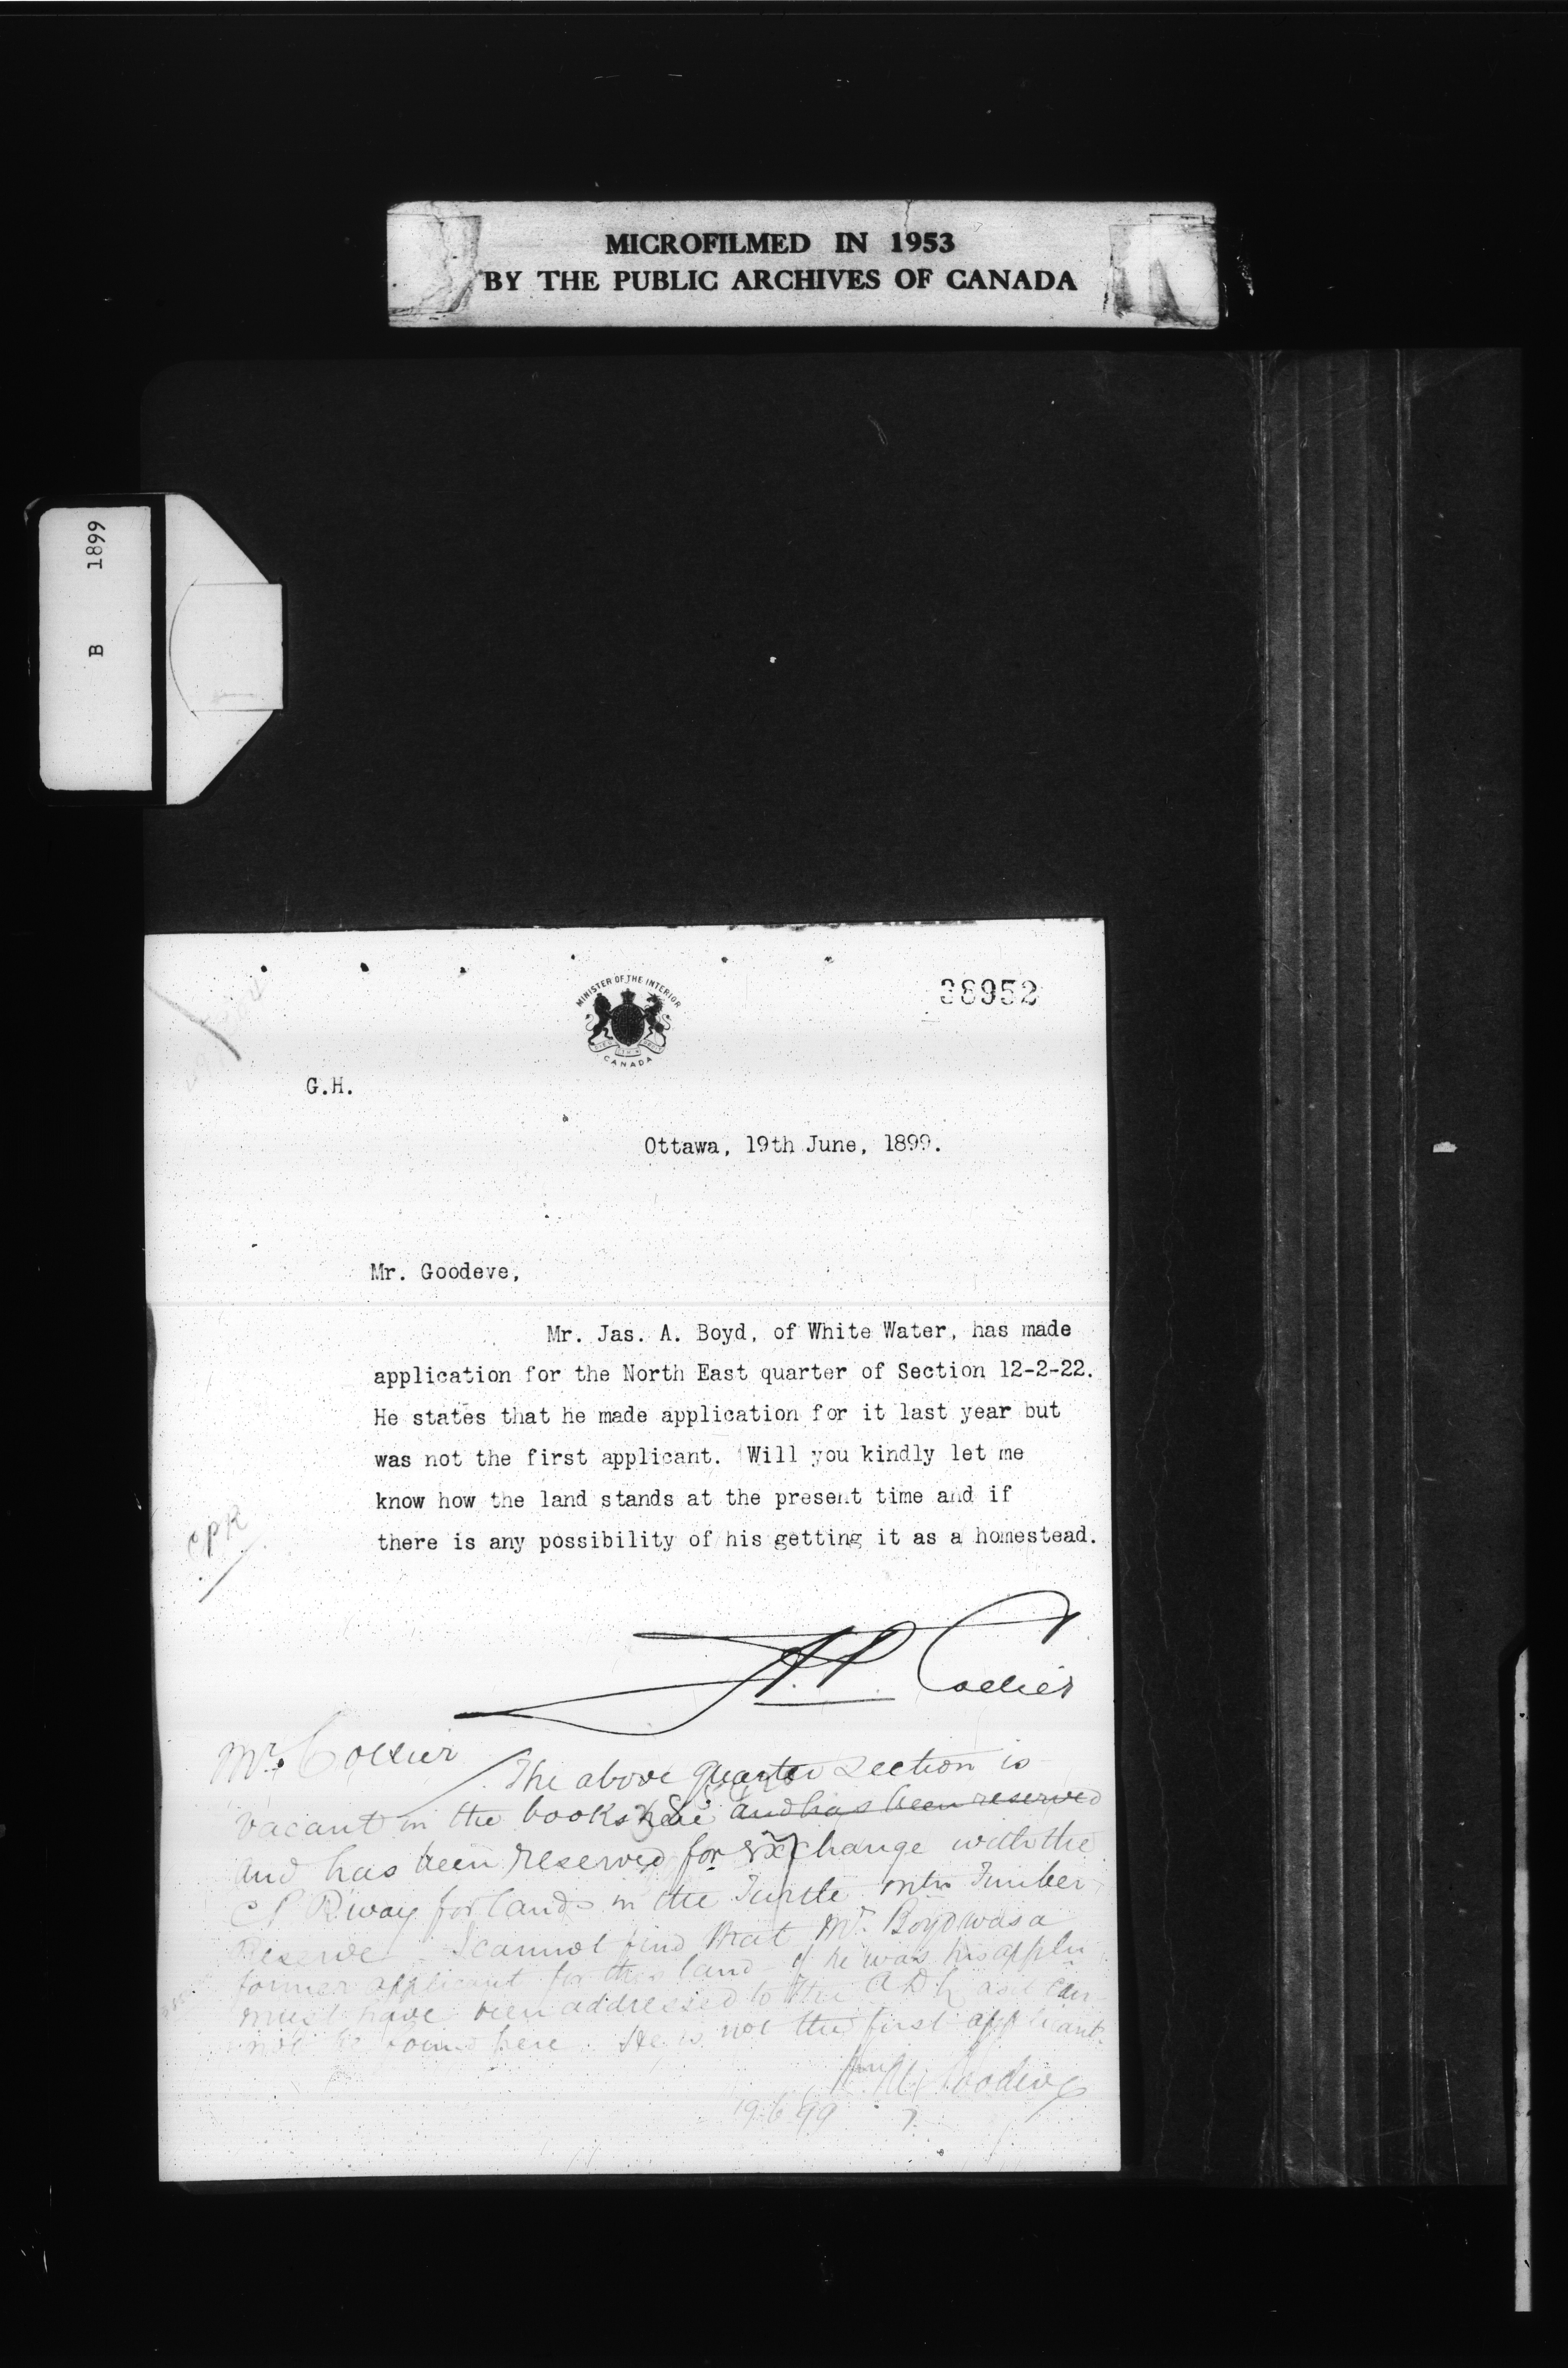 MICROFILMED IN 1953
BY THE PUBLIC ARCHIVES OF CANADA
B 1899
MINISTER OF THE INTERIOR
CANADA
38952
G.H.
Ottawa, 19th June, 1899.
Mr. Goodeve,
Mr. Jas. A. Boyd, of White Water, has made
application for the North East quarter of Section 12-2-22.
He states that he made application for it last year but
was not the first applicant. Will you kindly let me
know how the land stands at the present time and if
there is any possibility of his getting it as a homestead.
CPR
A.P. Collier
Mr. Collier
The above quarter section is
vacant in the books here and has been reserved
and has been reserved for exchange with the
C P R'way for lands in the Turtle Mtn Timber
Reserve - I cannot find that Mr. Boyd was a
former applicant for this land - if he was his appln
must have been addressed to the A D L as it can
not be found here. He is not the first applicant.
Goodeve
19.6.99